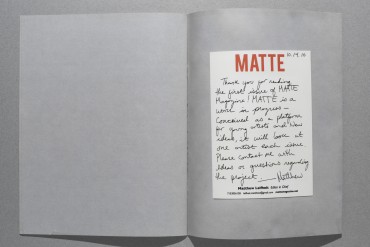 MATTE
Thank you for reading
the first issue of MATTE
Magazine! MATTE is a
work in progress —
Conceived as a platform
for young artists and new
ideas, it will look at
one artist each issue.
Please contact me with
ideas or questions regarding
the project. — Matthew
Matthew Leifheit